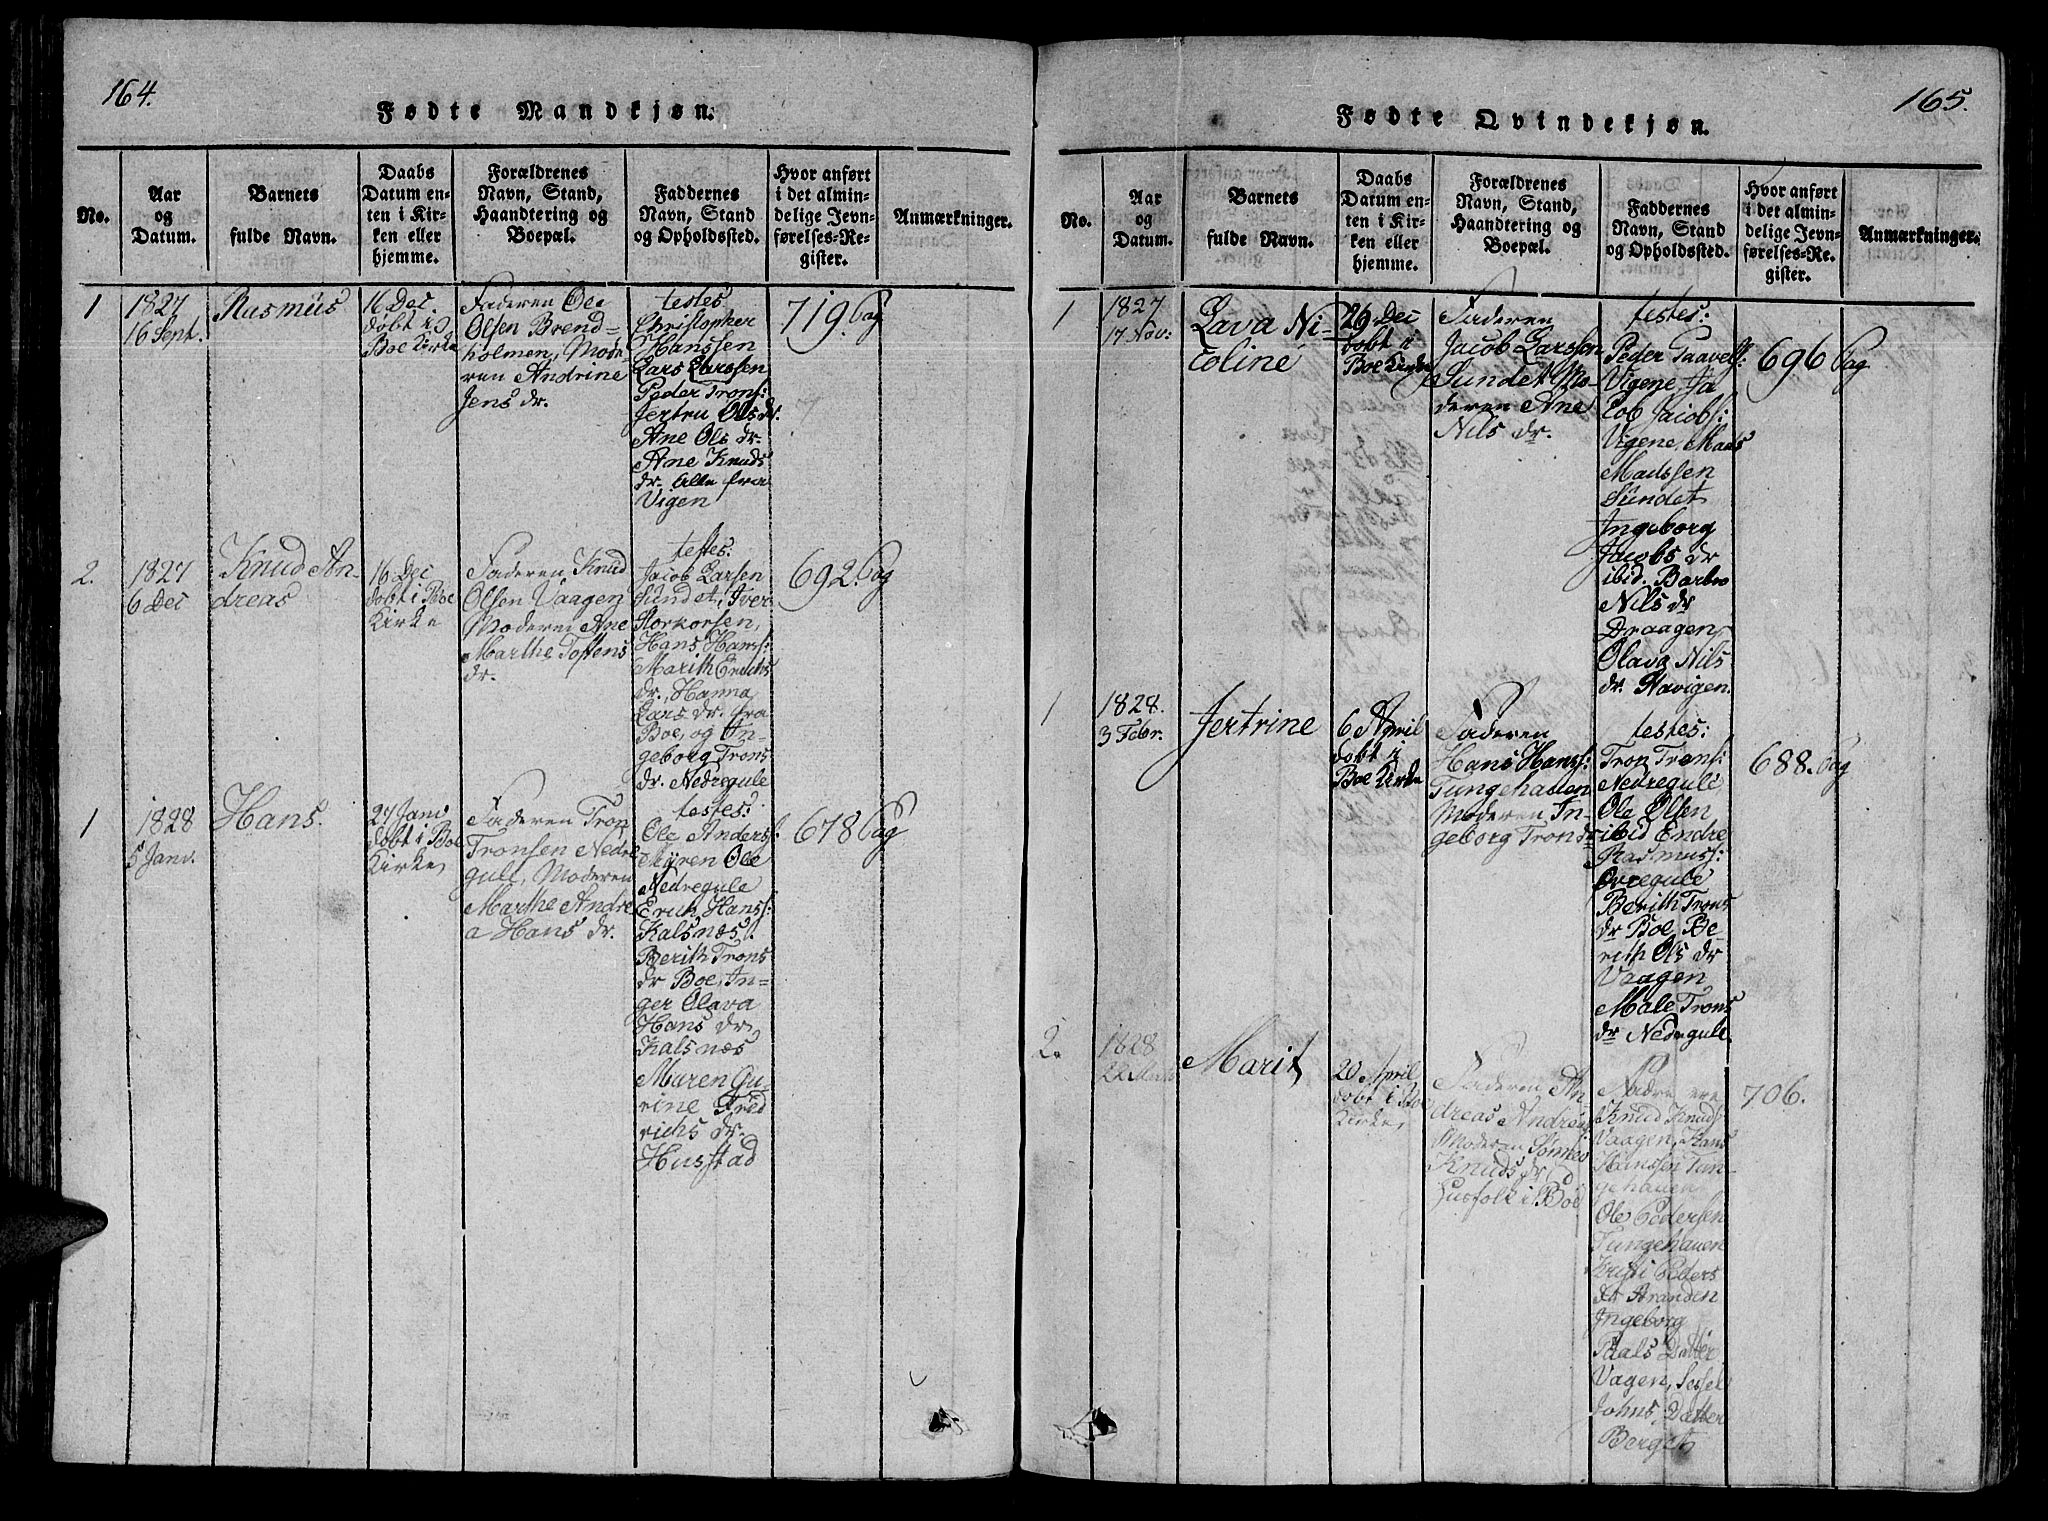 164.
Fødte Mandkjøn.
No.
Aar
og
Datum.
Barnets
fulde Navn.
Daabs
Datum en-
ten i Kir-
ken eller
hjemme.
Forældrenes
Navn, Stand,
Haandtering og
Boepæl.
Faddernes
Navn, Stand
og Opholdssted.
Hvor anført
i det almin-
delige Jevn-
førelses-Re-
gister.
Anmærkninger.
1
1827
16 Sept.
Rasmus
16 Dec
døbt i
Boe Kirke
Faderen Ole
Olsen Brend-
holmen, Mode-
ren Andrine
Jens dr.
testes
Christopher
Hanssen
Lars Larssen
Peder Trons:
Jertru Ols dr.
Ane Ols dr.
Ane Knuds
dr. alle fra
Vigen
719 Pag
2.
1827
6 Dec
Knud An-
dreas
16 Dec
døbt i Boe
Kirke
Faderen Knud
Olsen Vaagen
Moderen Ane
Marthe Tostens
dr.
testes:
Jacob Larsen
Sundet, Iver
Storkorsen,
Hans Hanss:
Marith Erichs
dr., Hanna
Lars dr. fra
Boe, og In-
geborg Trons
dr. Nedregule
692 Pag
1
1828
5 Janv.
Hans.
27 Janv
døbt i Boe
Kirke
Faderen Tron
Tronsen Nedre
gule, Moderen
Marthe Andre
a Hans dr.
testes:
Ole Anderss:
Myren Ole
Nedregule
Erich Hanss:
Kalsnæs.
Berith Trons
dr Boe, In-
ger Olava
Hans dr
Kalsnæs
Maren Gu-
rine Fred
richs dr.
Hustad
678 Pag
165.
Fødte Qvindekjøn.
No.
Aar
og
Datum.
Barnets
fulde Navn.
Daabs
Datum en-
ten i Kir-
ken eller
hjemme.
Forældrenes
Navn, Stand,
Haandtering og
Boepæl.
Faddernes
Navn, Stand
og Opholdssted.
Hvor anført
i det almin-
delige Jevn-
førelses-Re-
gister.
Anmærkninger.
1
1827
17 Nov:
Lava Ni-
coline
26 Dec
døbt i
Boe Kirke
Faderen
Jacob Larssen
Sundet Mo-
deren Ane
Nils dr.
testes:
Peder Paavels:
Vigene, Ja
cob Jacobs:
Vigene, Mads
Madssen
Sundet
Ingeborg
Jacobs dr
ibid. Barbro
Nils dr
Draagen,
Olava Nils
dr. Havigen.
696 Pag
1
1828.
3 Febr.
Jertrine
6 April
døbt i
Boe Kirke
Faderen
Hans Hanss:
Tungehauen
Moderen In-
geborg Trons dr
testes:
Tron Trons:
Nedregule
Ole Olsen
ibid Endre
Rasmuss:
Øvregule
Berith Trons
dr Boe, Be
rith Ols dr
Vaagen
Male Trons
dr Nedregule.
688. Pag
2.
1828
22 Marts
Marit
20 April
døbt i Boe
Kirke,
Faderen An
dreas Andres:
Moderen
Knuds dr,
Husfolk i Boe
Fadre ere
Knud Knuds:
Vaagen, Hans
Hanssen Tun-
gehauen
Ole Pedersen
Tungehauen
Kristi Peders
dr Stranden
Ingeborg
Paals Datter
Vagen, Sessel
Johns Datter
Berget
706.